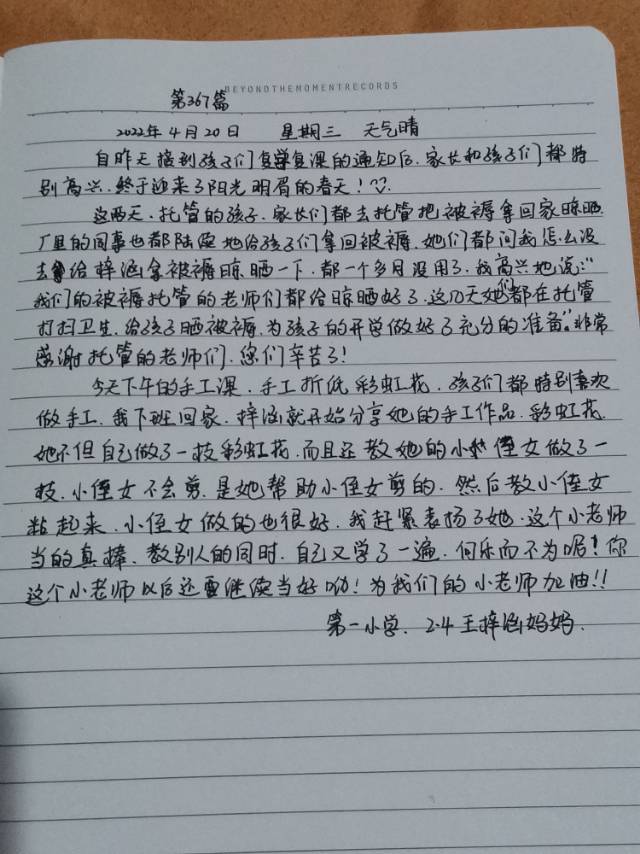 BEYONDTHEMOMENTRECORDS
第367篇
2022年4月20日 星期三 天气晴
自昨天接到孩子们复学复课的通知后、家长和孩子们都特
别高兴、终于迎来了阳光明眉的春天！♡
这两天、托管的孩子、家长们都去托管把被褥拿回家晾晒
厂里的同事也都陆续地给孩子们拿回被褥、她们都问我怎么没
去给梓涵拿被褥晾晒一下、都一个多月没用了、我高兴地说：“
我们的被褥托管的老师们都给晾晒好了、这几天她们都在托管
打扫卫生、给孩子晒被褥、为孩子的开学做好了充分的准备”。非常
感谢托管的老师们、您们辛苦了！
今天下午的手工课、手工折纸彩虹花、孩子们都特别喜欢
做手工、我下班回家、梓涵就开始分享她的手工作品、彩虹花
她不但自己做了一枝彩虹花、而且还教她的小侄女做了一
枝、小侄女不会剪、是她帮助小侄女剪的、然后教小侄女
粘起来、小侄女做的也很好、我赶紧表扬了她、这个小老师
当的真棒、教别人的同时、自己又学了一遍、何乐而不为呢！你
这个小老师以后还要继续当好哟！为我们的小老师加油！！
第一小学、2.4王梓涵妈妈.